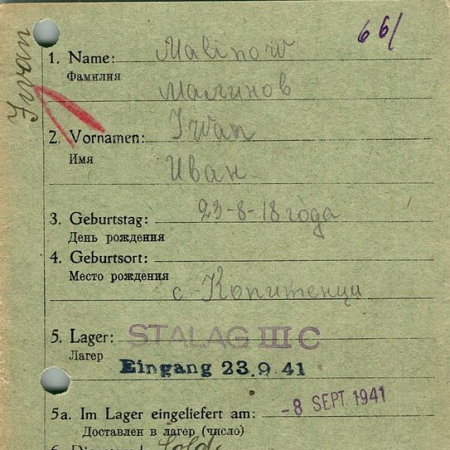 Iwan
66/
1. Name: Malinow
Фамилия
Малинов
2. Vornamen: Iwan
Имя
Иван
3. Geburtstag: 23-8-18 года
День рождения
4. Geburtsort:
Место рождения
с.
5. Lager: STALAG III C
Лагер
Eingang 23.9.41
5a. Im Lager eingeliefert am: -8 SEPT. 1941
Доставлен в лагер (число)